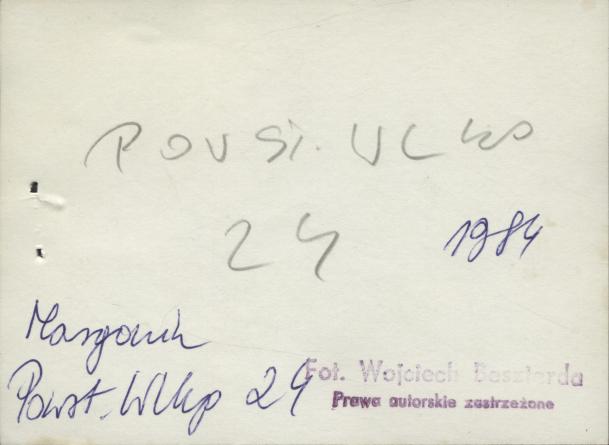 POWST. WLKP
24
1984
Margonin
Powst. Wlkp 24
Fot. Wojciech Beszterda
Prawa autorskie zastrzeżone